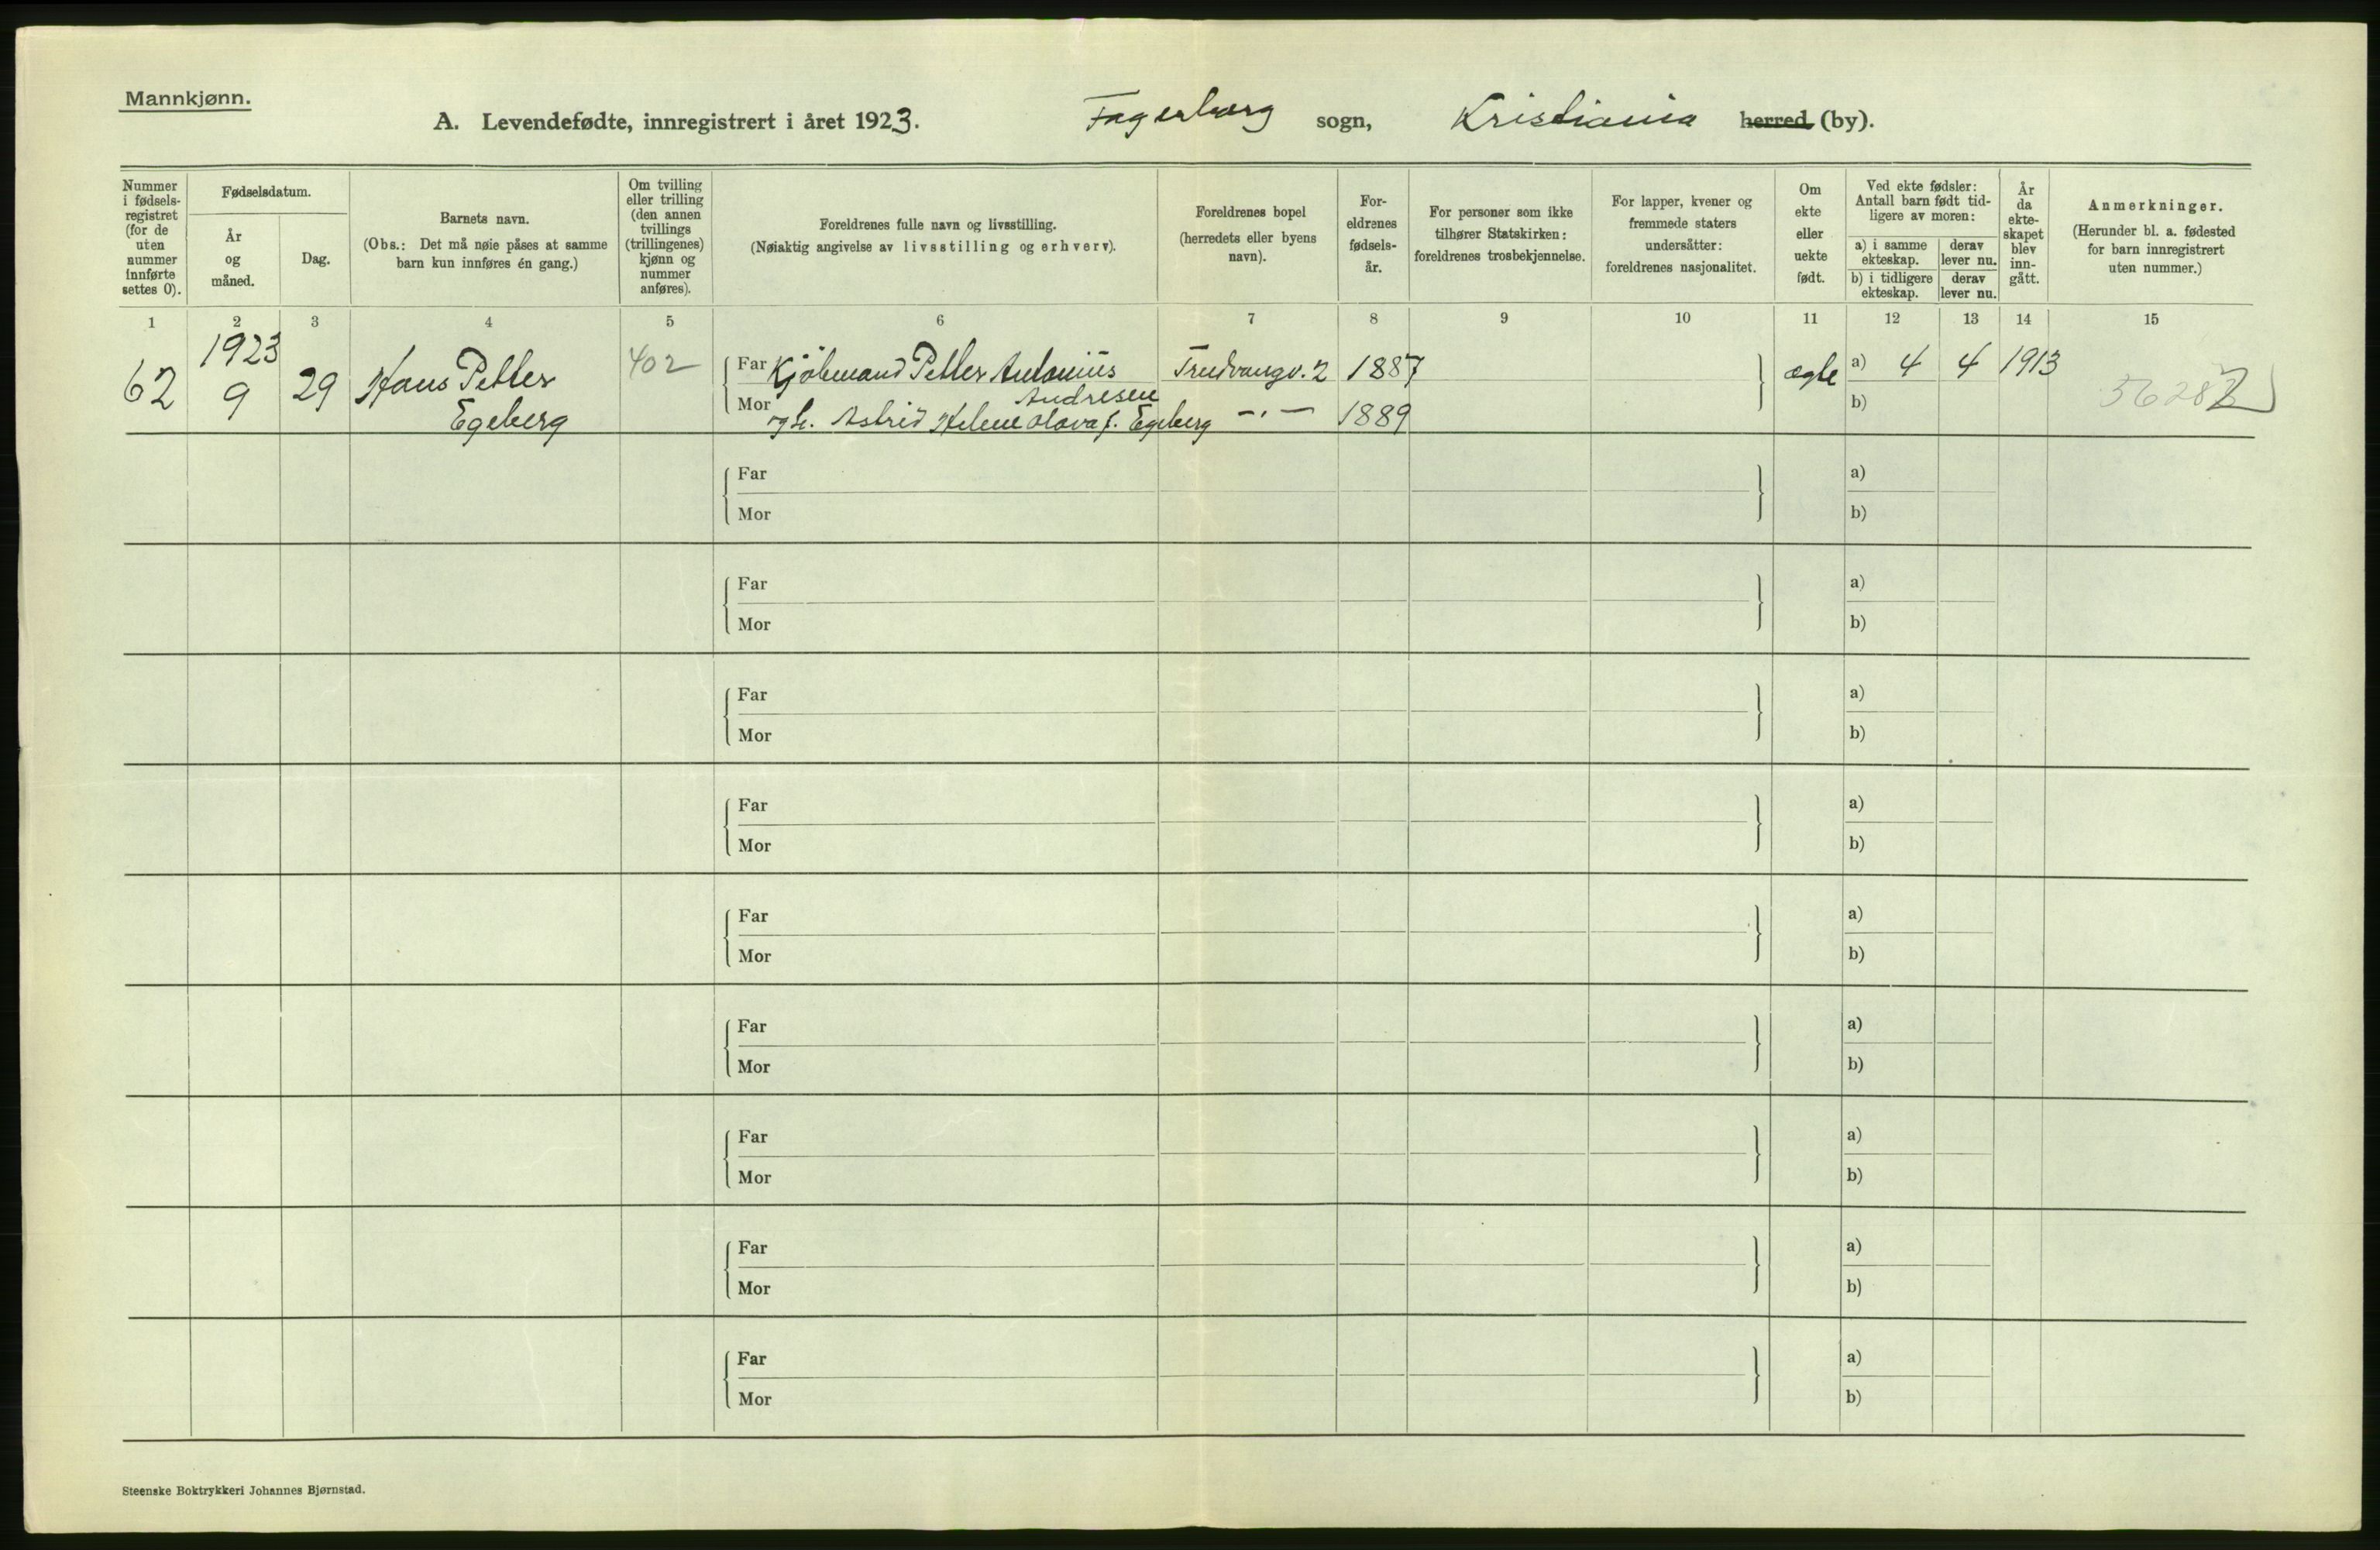 Mannkjønn.
A. Levendefødte, innregistrert i året 1923. Fagerborg sogn, Kristiania herred (by).
Nummer i fødsels-registret (for de uten nummer innførte settes 0).
Fødselsdatum.
År og måned.
Dag.
Barnets navn.
(Obs.: Det må nøie påses at samme barn kun innføres én gang.)
Om tvilling eller trilling (den annen tvillings (trillingenes) kjønn og nummer anføres).
Foreldrenes fulle navn og livsstilling.
(Nøiaktig angivelse av livsstilling og erhverv).
Foreldrenes bopel (herredets eller byens navn).
For-eldrenes fødsels-år.
For personer som ikke tilhører Statskirken: foreldrenes trosbekjennelse.
For lapper, kvener og fremmede staters undersåtter: foreldrenes nasjonalitet.
Om ekte eller uekte født.
Ved ekte fødsler: Antall barn født tid-ligere av moren:
a) i samme ekteskap.
derav lever nu.
b) i tidligere ekteskap.
derav lever nu.
År da ekte-skapet blev inn-gått.
Anmerkninger.
(Herunder bl. a. fødested for barn innregistrert uten nummer.)
1 2 3 4 5 6 7 8 9 10 11 12 13 14 15
62 1923 9 29 Hans Petter Egeberg 402
Far Kjøbmand Petter Antonius Andresen Trudvangv. 2 1887 ægte a) 4 4 1913
Mor og h. Astrid Helene Olava f. Egeberg —„— 1889 b)
36282
Far a)
Mor b)
Far a)
Mor b)
Far a)
Mor b)
Far a)
Mor b)
Far a)
Mor b)
Far a)
Mor b)
Far a)
Mor b)
Far a)
Mor b)
Far a)
Mor b)
Steenske Boktrykkeri Johannes Bjørnstad.